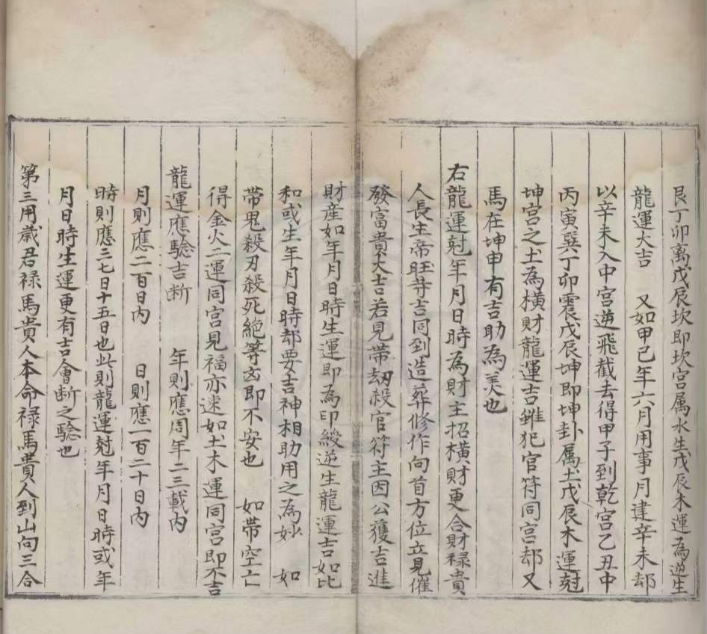 艮丁卯离戊辰坎即坎宫属水生戊辰木運為逆生
龍運大吉　又如甲己年六月用事月建辛未却
以辛未入中宫逆飛截去得甲子到乾宫乙丑中
丙寅巽丁卯震戊辰坤即坤卦属土戊辰木運尅
坤宫之土為横財龍運吉雖犯官符同宫却又
馬在坤申有吉助為美也
右龍運尅年月日時為財主招横財更合財禄貴
人長生帝旺等吉同到造葬修作向首方位立見催
發富貴大吉若見带刼殺官符主因公獲吉進
財産如年月日時生運即為印綬逆生龍運吉如比
和或生年月日時却要吉神相助用之為妙　如
带鬼殺刃殺死絶等凶即不安也　如带空亡
得金火二運同宫見福亦速如土木運同宫即不吉
龍運應驗吉断　年則應周年二三載内
月則應二百日内　日則應一百二十日内
時則應三七日十五日也此則龍運尅年月日時或年
月日時生運更有吉會断之驗也
第三用歳君禄馬貴人本命禄馬貴人到山向三合